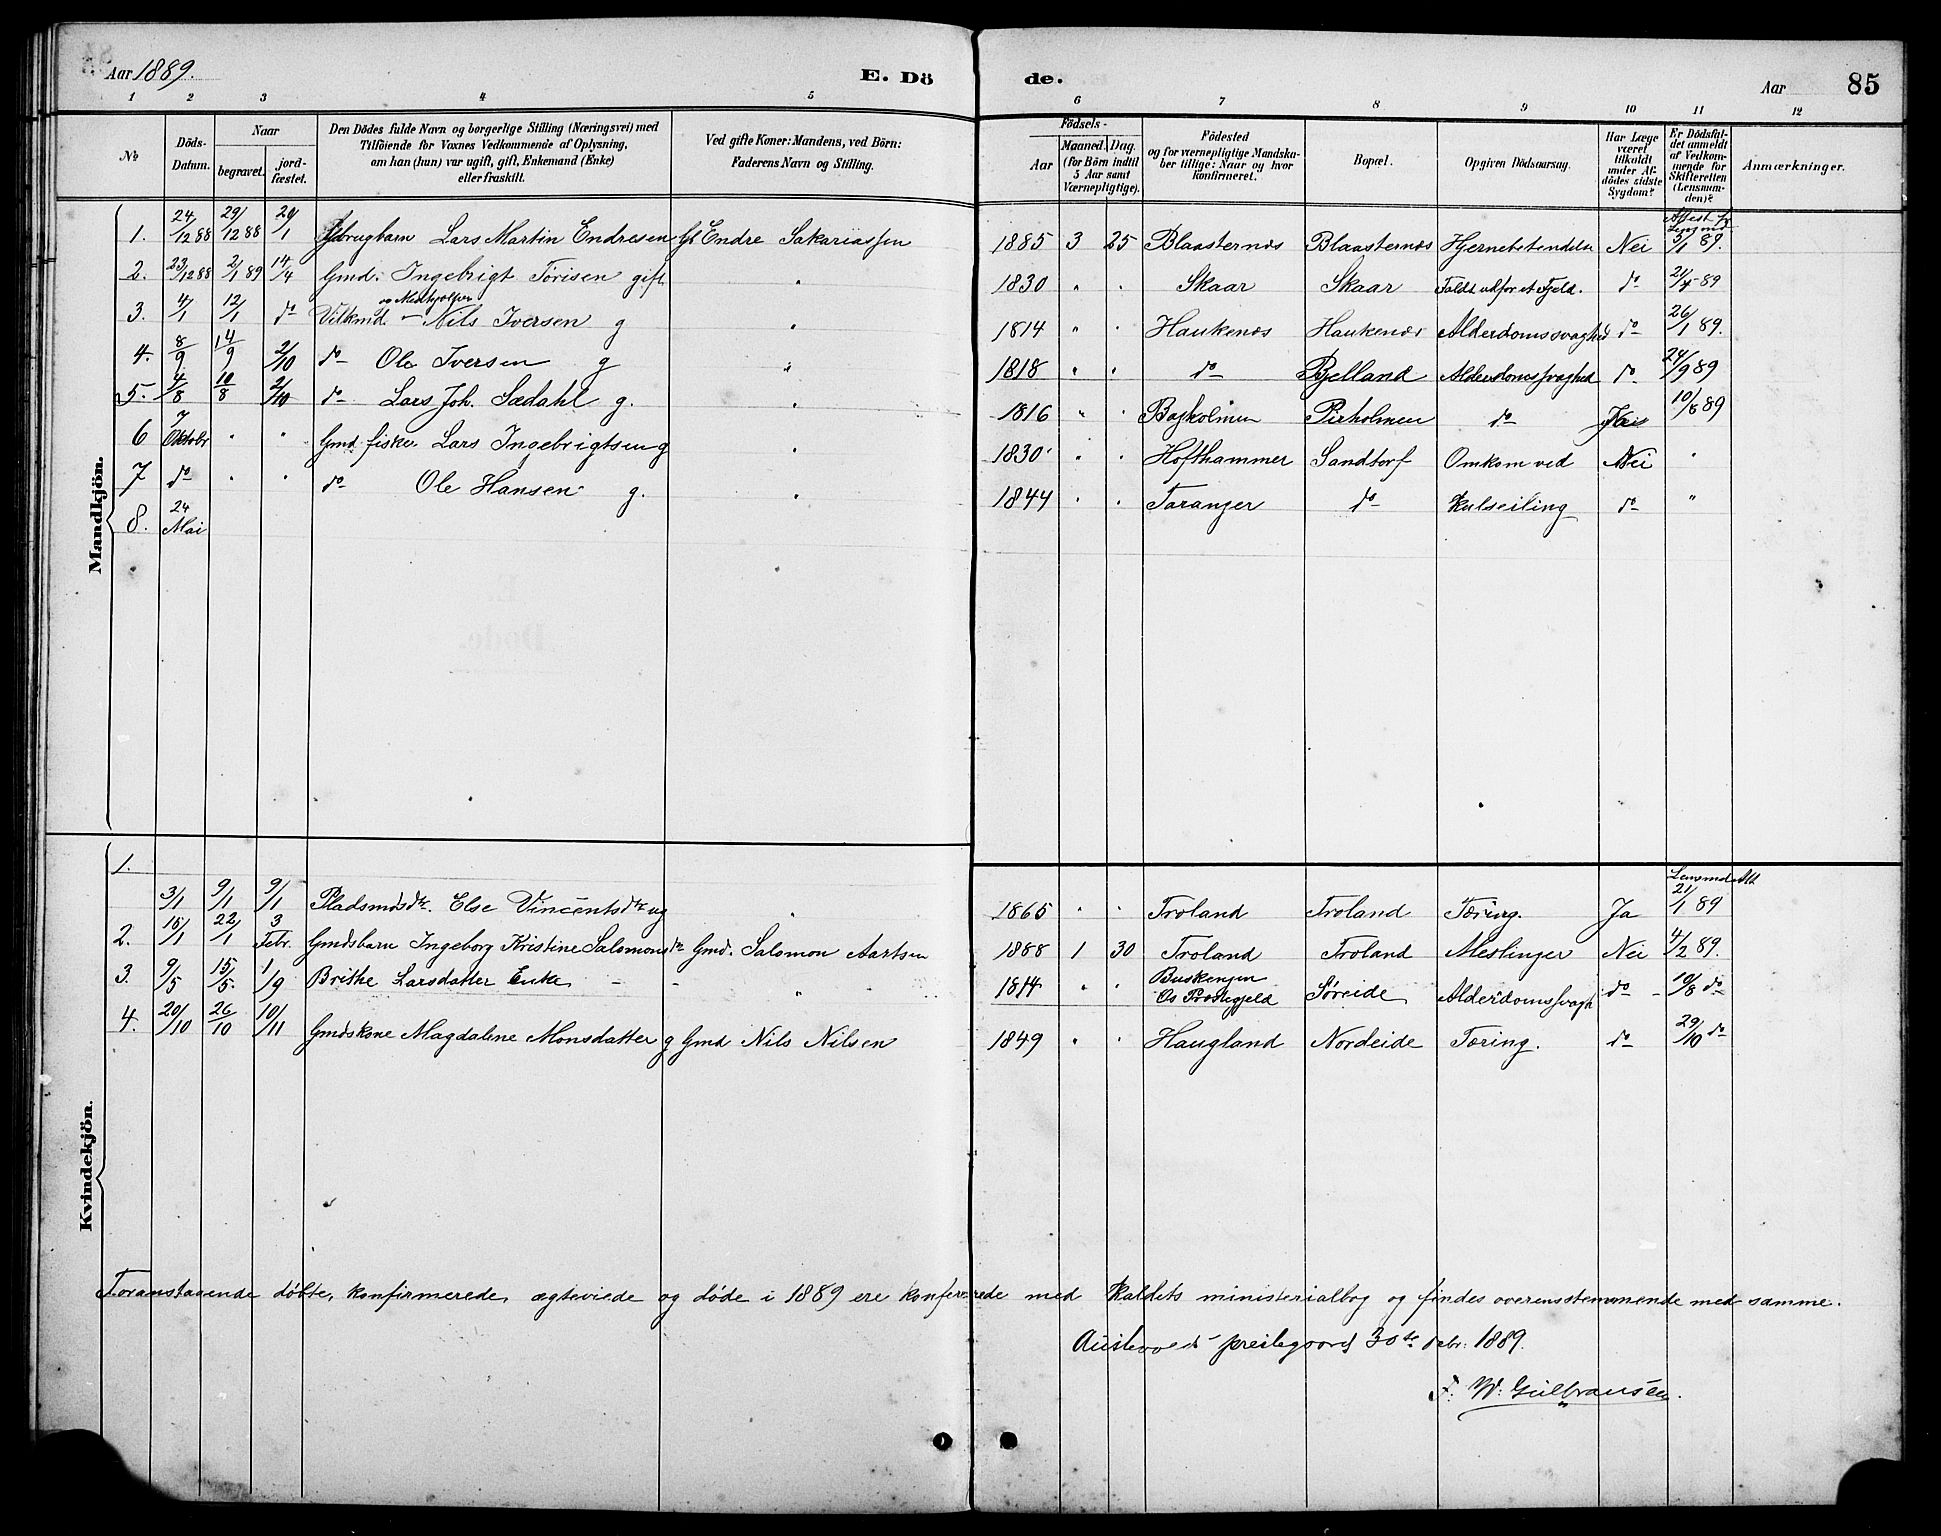 Aar 1889. E. Dö de. Aar 85
1 2 3 4 5 6 7 8 9 10 11 12
No. Döds-Datum. Naar begravet. jord-fæstet. Den Dödes fulde Navn og borgerlige Stilling (Næringsvei) med Tilföiende for Voxnes Vedkommende af Oplysning, om han (hun) var ugift, gift, Enkemand (Enke) eller fraskilt. Ved gifte Koner: Mandens, ved Börn: Faderens Navn og Stilling. Födsels- Aar Maaned. Dag. (for Börn indtil 5 Aar samt Værnepligtige). Födested og for værnepligtige Mandska-ber tillige: Naar og hvor konfirmeret. Bopæl. Opgiven Dödsaarsag. Har Læge været tilkaldt under Af-dödes sidste Sygdom? Er Dödsfal-det anmeldt af Vedkom-mende for Skifteretten (Lensman-den)? Anmærkninger.
Mandkjön.
1. 24/12 88 29/12 88 20/1 Gbrugbarn Lars Martin Endresen Gb Endre Sakariassen 1885 3 25 Blaasternæs Blaasternæs Hjernebetendelse Nei 3/1 89.
2. 23/12 88 2/1 89 14/4 Gmd. Ingebrigt Törisen gift " 1830 " " Skaar Skaar Faldt udfor et Fjeld. do 21/4 89
3. 4/1 12/1 do Vilkmd. Nils Iversen g " 1814 " " Haukenæs Haukenæs Alderdomssvaghed do 26/1 89.
4. 8/9 14/9 2/10 do Ole Iversen g " 1818 " " do Bjelland Alderdomssvaghed do 24/9 89
5. 4/8 10/8 2/10 do Lars Joh. Sædahl g. " 1816 " " Bagholmen Pirholmen do 10/8 89
6 7 Oktobr " " Gmd. fisker Lars Ingebrigtsen g " 1830 " " Hofthammer Sandtorf Omkom ved Nei "
7 do " " do Ole Hansen g. " 1844 " " Taranger do Kulseiling do "
8. 24 Mai
Kvindekjön.
1.
3/1 9/1 9/1 Pladsmdsdtr. Else Vincentsdtr ug " 1865 " " Troland Troland Tæring. Ja 21/1 89
2. 15/1 22/1 3 Febr. Gmdsbarn Ingeborg Kristine Salomonsdtr Gmd. Salomon Aartsen 1888 1 30 Troland Troland Meslinger Nei 4/2 89.
3. 9/5 15/5. 1/9 Brithe Larsdatter Enke - - " 1814 " " Os Præstegjeld Søreide Alderdomssvagh do - 10/8 do
4. 20/10 26/10 10/11 Gmdskone Magdalene Monsdatter g Gmd Nils Nilsen 1849 " " Haugland Nordeide Tæring. do 29/10 do
Foranstaaende døbte, konfirmerede, ægteviede og døde i 1889 ere konfererede med Kaldets ministerialbog og findes overensstemmende med samme.
Austevolds prestegaard 30te debr: 1889.
F. W. Gulbransen.